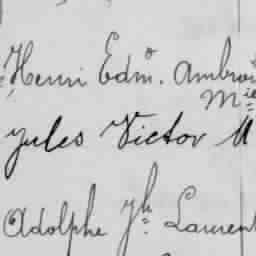 Henri Edmo. Ambroi
Mie
Jules Victor M
Adolphe Jh Laurent